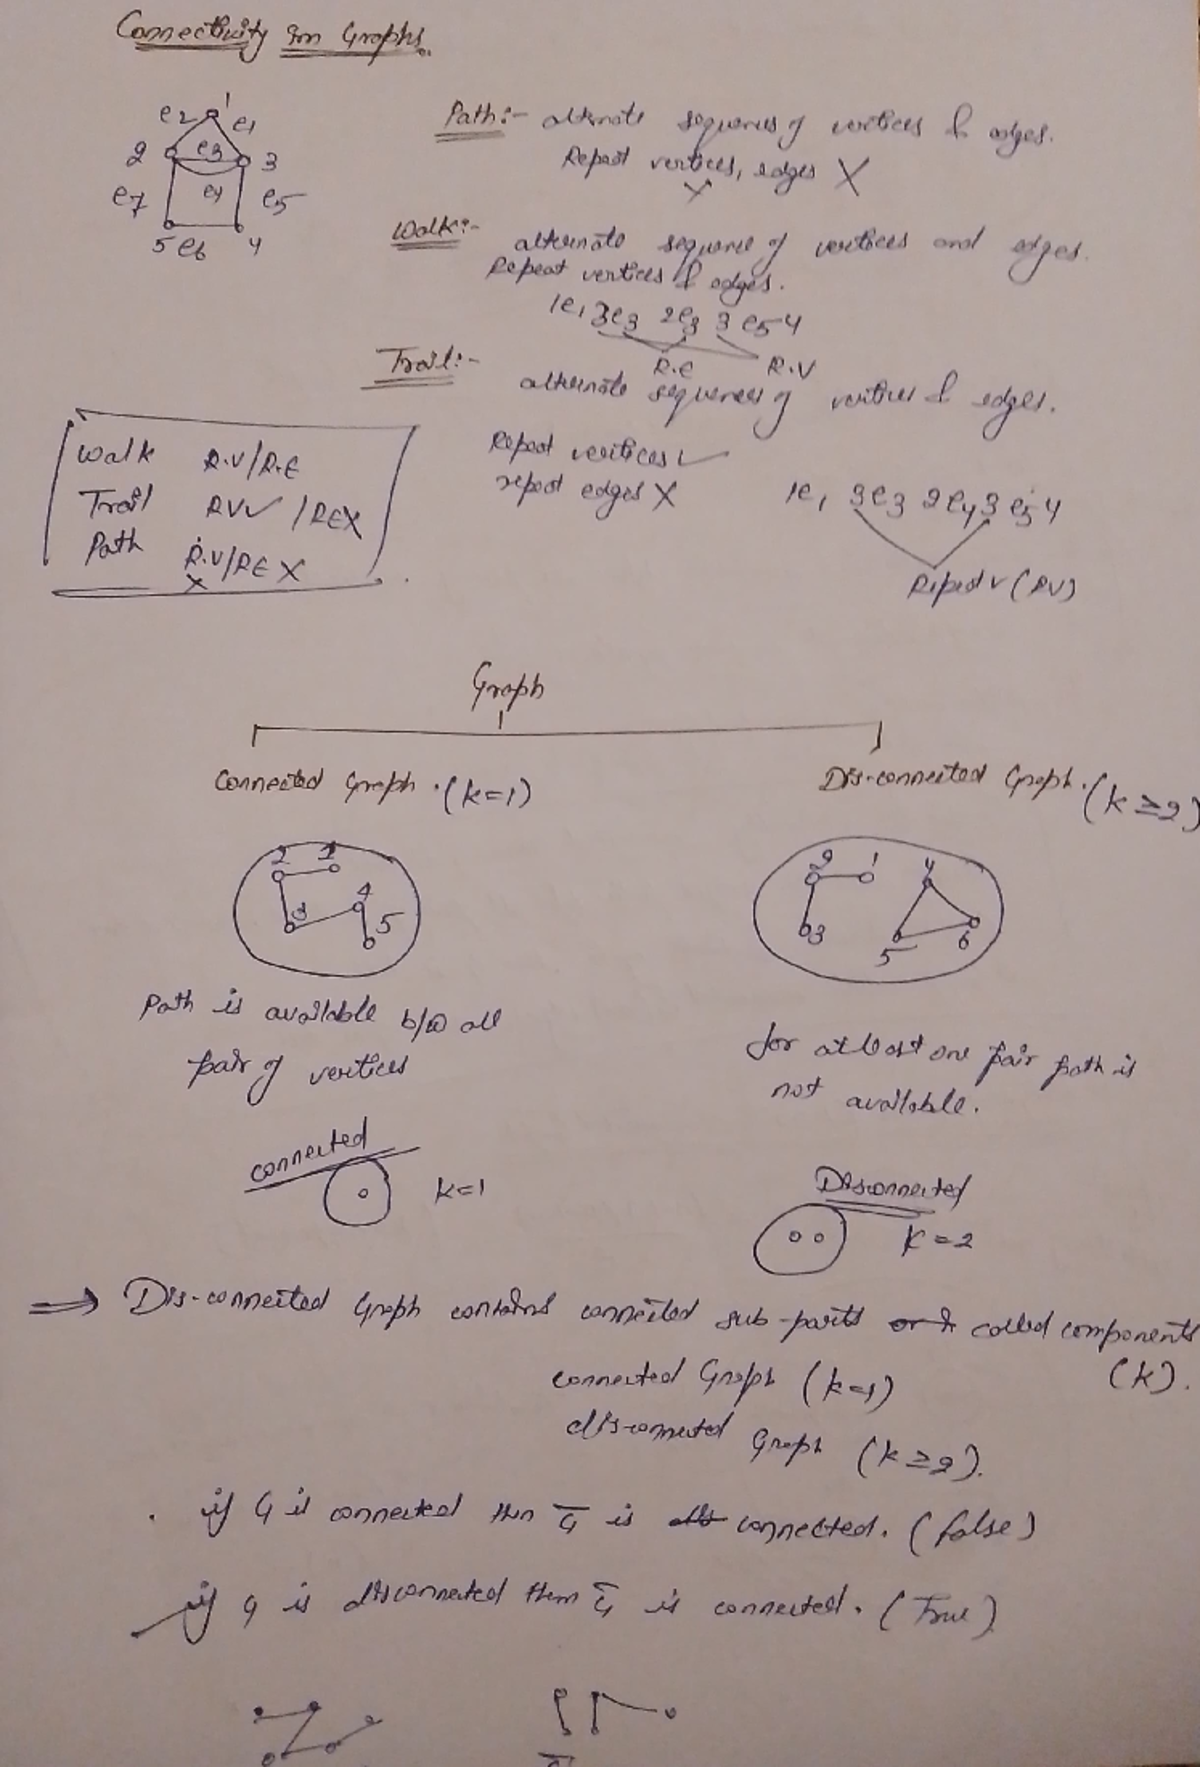 Connectivity in Graphs.
1
e2 e1
2 e3 3
e7 e4 e5
5 e6 4
Path:- alternate sequences of vertices & edges.
Repeat vertices, edges X
X
Walk:- alternate sequence of vertices and edges.
Repeat vertices & edges.
1e1 3e3 2e3 3 e5 4
R.E R.V
Trail:- alternate sequences of vertices & edges.
Repeat vertices ✓
repeat edges X
1e1 3e3 2e4 3 e5 4
Repeat v (RV)
Walk R.V/R.E
Trail RV✓ /REX
Path R.V/RE X
X
Graph
Connected Graph. (k=1)
Dis-connected Graph. (k≥2)
2 1
3 4 5
2 1 4
3 5 6
Path is available b/w all
pair of vertices
for atleast one pair path is
not available.
connected
k=1
Disconnected
k=2
⇒ Dis-connected Graph contains connected sub-parts called components
(k).
connected Graph (k=1)
dis-connected Graph (k≥2).
. if G is connected then G̅ is connected. (false)
if G is disconnected then G̅ is connected. (True)